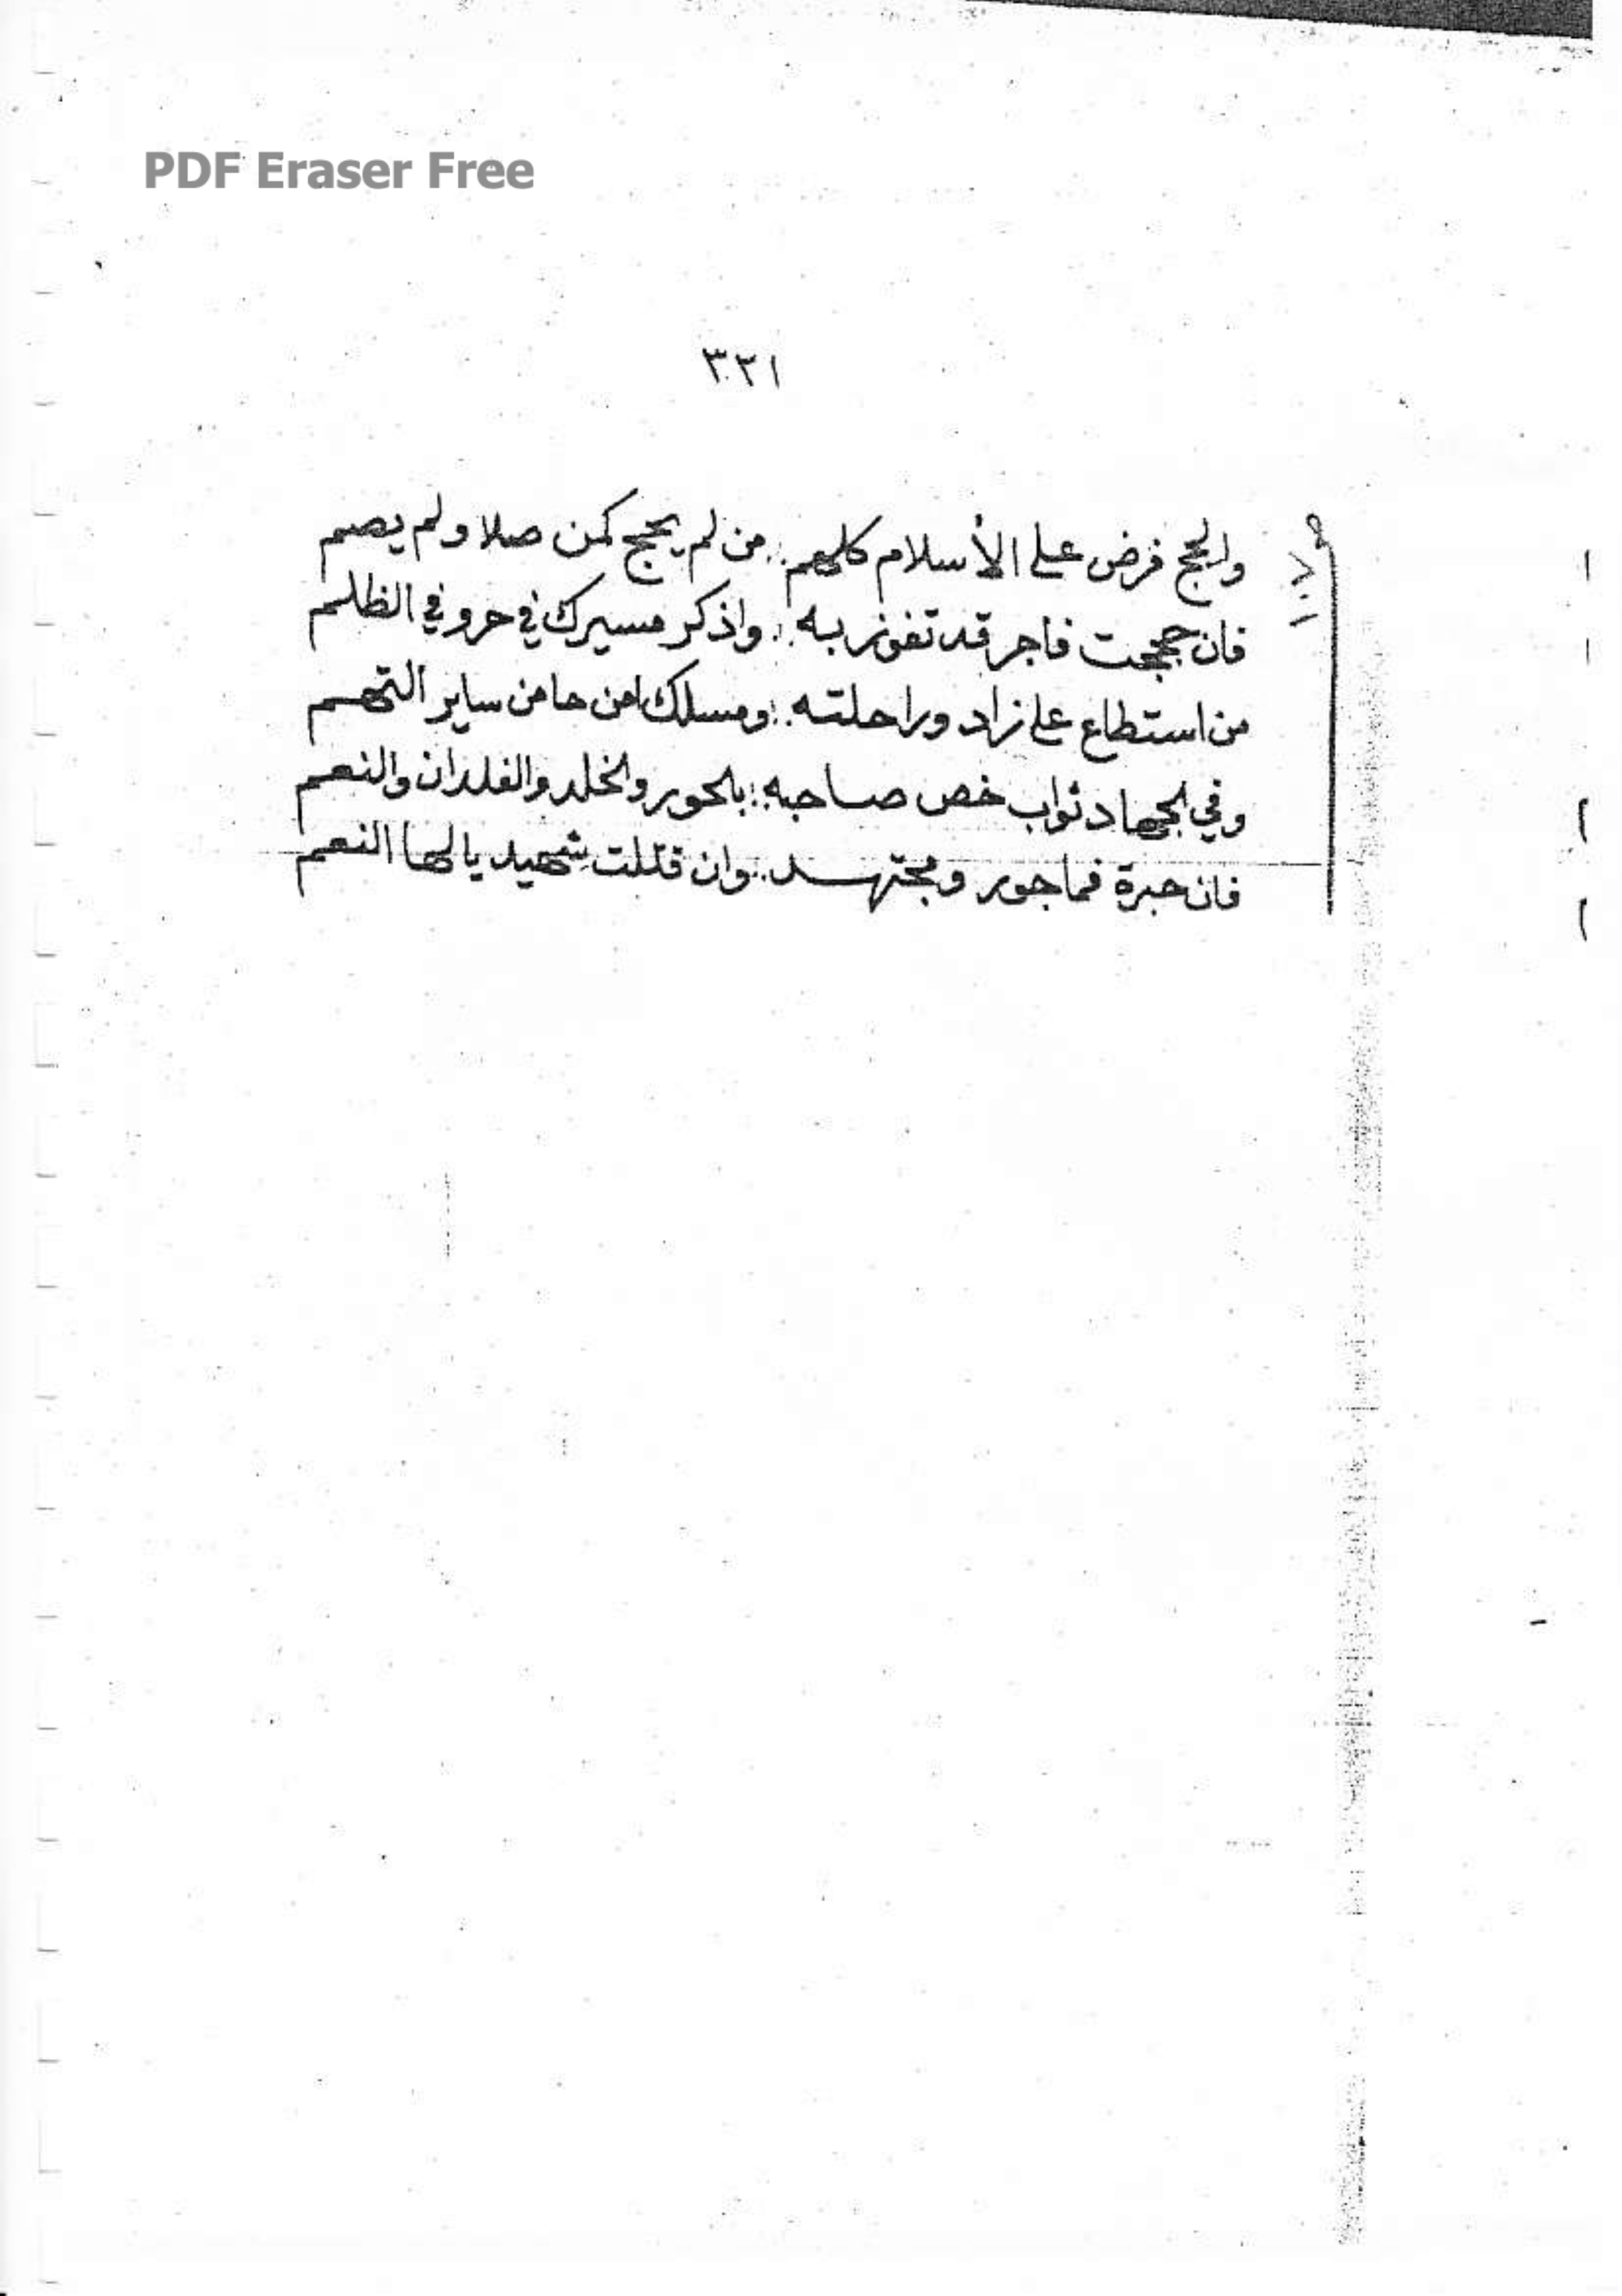 PDF Eraser Free
٣٢١
والحج فرض على الأسلام كلهم : من لم يحج كمن صلا ولم يصم
فان حججت فاجر قد تفوز به : واذكر مسيرك في حر وفي الظلم
من استطاع على زاد وراحلته : ومسلك امن حامن ساير التهم
وفي الجهاد ثواب خص صاحبه : بالحور والخلد والغلدان والنعم
فان حبرة فماجور ومجتهد : وان قتلت شهيد يالها النعم